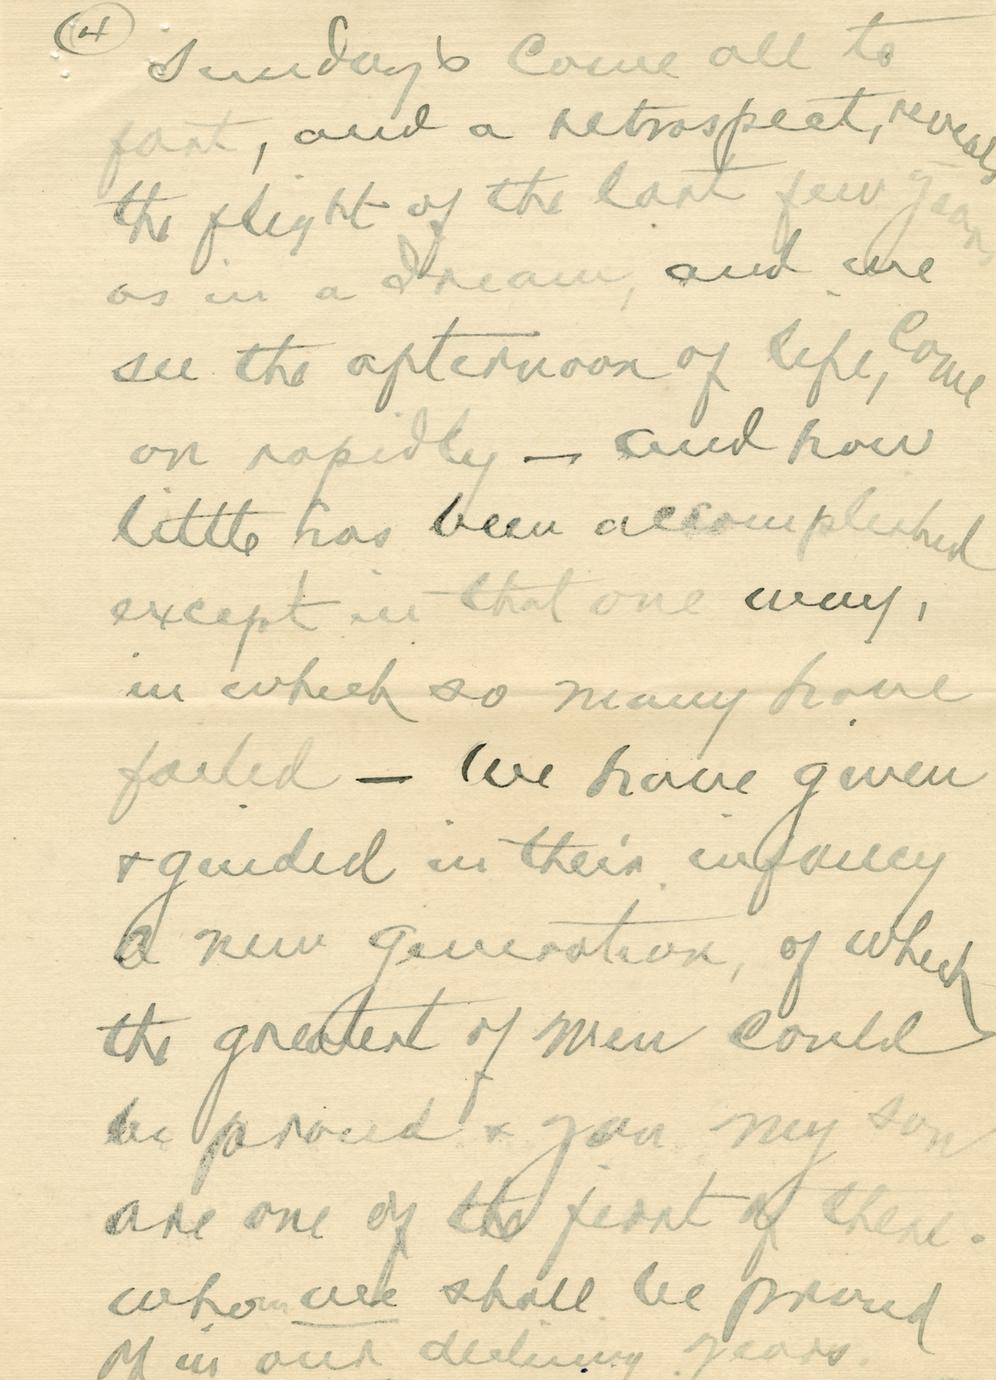 (4)
Sundays come all to
fast, and a retrospect, reveals
the flight of the last few years
as in a dream, and we
see the afternoon of life, come
on rapidly — and how
little has been accomplished
except in that one way,
in which so many have
failed — We have given
& guided in their infancy
a new generation, of which
the greatest of men could
be proud & you my son
are one of the first of these.
whom we shall be proud
of in our declining years.